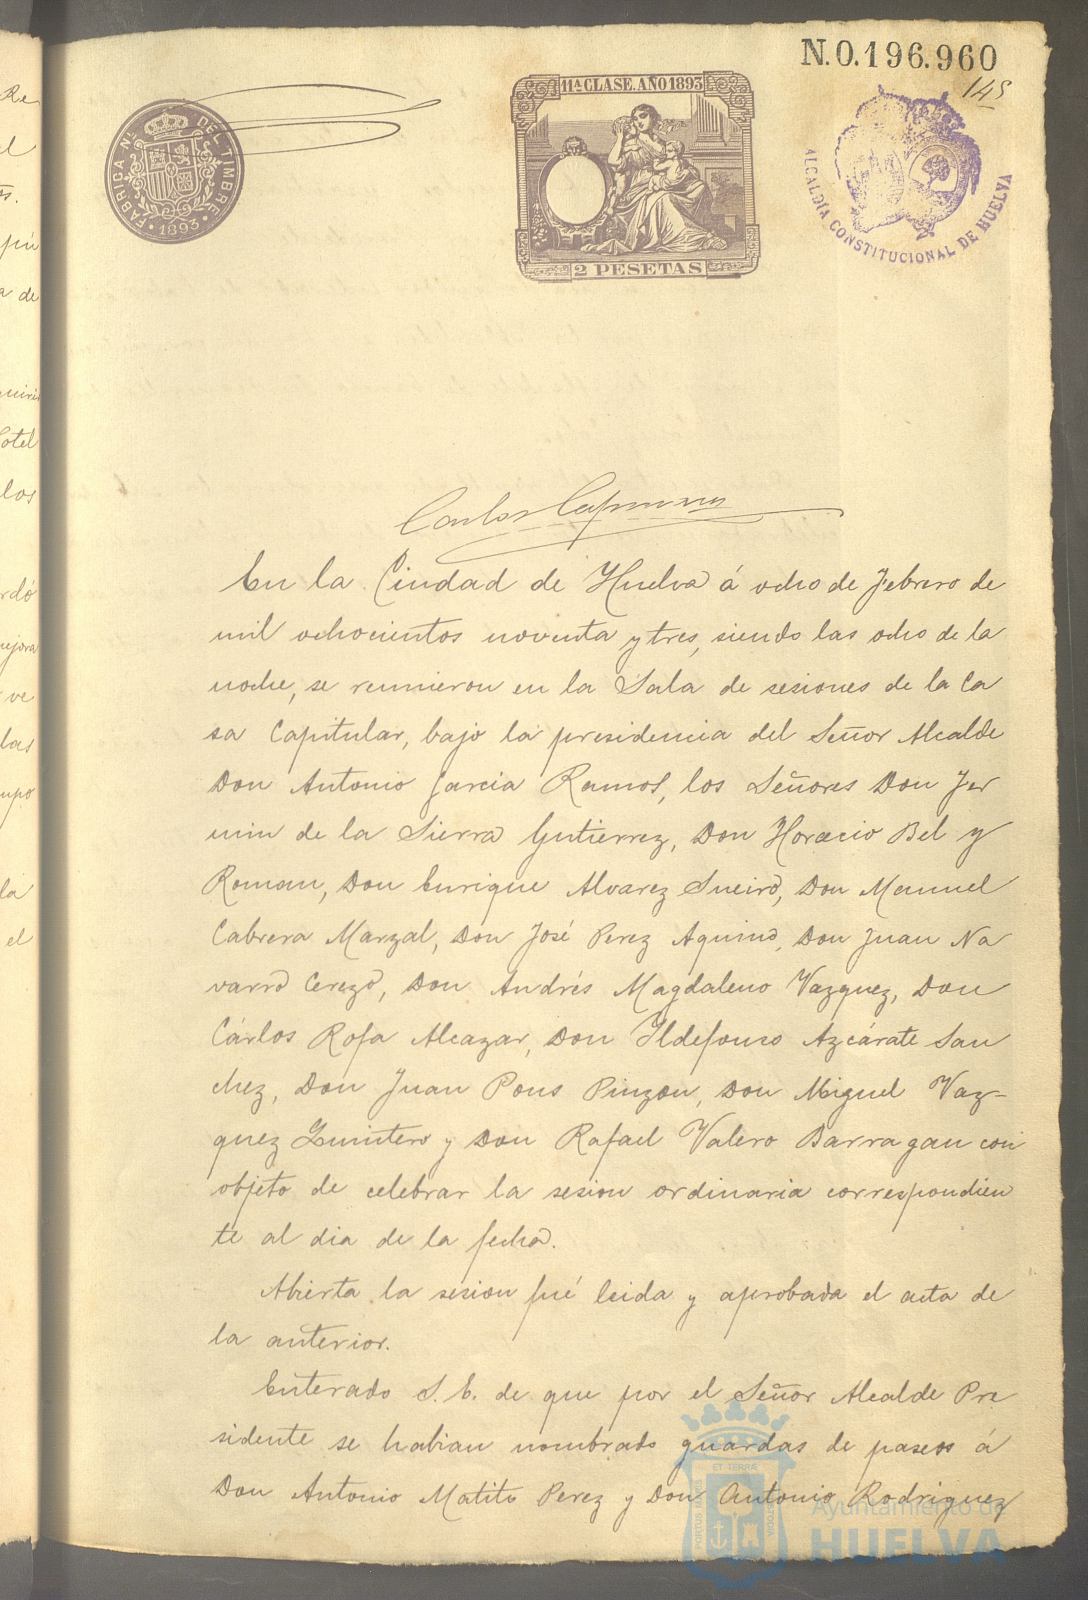 N.0.196.960
145
11ª CLASE. AÑO 1893
FABRICA Nˡ. DEL TIMBRE
1893
2 PESETAS
ALCALDÍA CONSTITUCIONAL DE HUELVA
Carlos
En la Ciudad de Huelva á ocho de Febrero de
mil ochocientos noventa y tres, siendo las ocho de la
noche, se reunieron en la Sala de sesiones de la Ca
sa Capitular, bajo la presidencia del Señor Alcalde
Don Antonio Garcia Ramos, los Señores Don Fer
min de la Sierra Gutierrez, Don Horacio Bel y
Roman, Don Enrique Alvarez Sueiro, Don Manuel
Cabrera Marzal, Don José Perez Aquino, Don Juan Na
varro Cerezo, Don Andrés Magdaleno Vazquez, Don
Cárlos Rofa Alcazar, Don Ildefonso Azcárate San
chez, Don Juan Pons Pinzon, Don Miguel Vaz-
quez Quintero y Don Rafael Valero Barragan con
objeto de celebrar la sesion ordinaria correspondien
te al dia de la fecha.
Abierta la sesion fué leida y aprobada el acta de
la anterior.
Enterado S. E. de que por el Señor Alcalde Pre
sidente se habian nombrado guardas de paseos á
Don Antonio Matito Perez y Don Antonio Rodriguez
PORTUS MARIS ET TERRÆ CUSTODIA
Ayuntamiento de
HUELVA